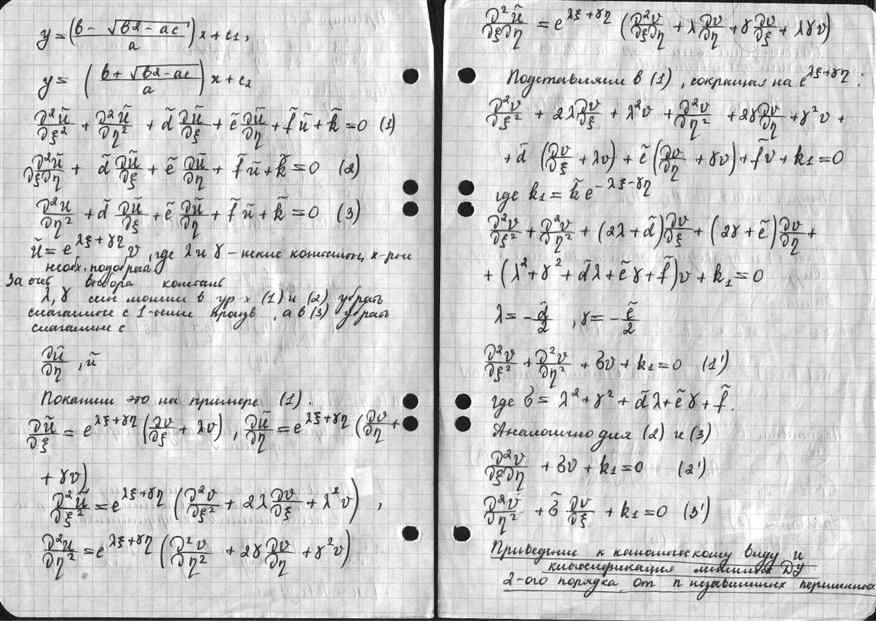 y = ((b - √(b2 - ac))/a) x + c1,
y = ((b + √(b2 - ac))/a) x + c2
∂²ũ/∂ξ² + ∂²ũ/∂η² + d̃ ∂ũ/∂ξ + ẽ ∂ũ/∂η + f̃ũ + k̃ = 0 (1)
∂²ũ/∂ξ∂η + d̃ ∂ũ/∂ξ + ẽ ∂ũ/∂η + f̃ũ + k̃ = 0 (2)
∂²u/∂η² + d̃ ∂ũ/∂ξ + ẽ ∂ũ/∂η + f̃ũ + k̃ = 0 (3)
ũ = e^(λξ+γη) v, где λ и γ – некие константы, к-рые
необх. подобрать
За счёт выбора констант
λ, γ мы можем в ур-х (1) и (2) убрать
слагаемые с 1-ыми произв, а в (3) убрать
слагаемые с
∂ũ/∂η, ũ
Покажем это на примере (1):
∂ũ/∂ξ = e^(λξ+γη) (∂v/∂ξ + λv), ∂ũ/∂η = e^(λξ+γη) (∂v/∂η +
+ γv)
∂²ũ/∂ξ² = e^(λξ+γη) (∂²v/∂ξ² + 2λ ∂v/∂ξ + λ²v),
∂²u/∂η² = e^(λξ+γη) (∂²v/∂η² + 2γ ∂v/∂η + γ²v)
∂²ũ/∂ξ∂η = e^(λξ+γη) (∂²v/∂ξ∂η + λ ∂v/∂η + γ ∂v/∂ξ + λγv)
Подставляем в (1), сокращая на e^(λξ+γη):
∂²v/∂ξ² + 2λ ∂v/∂ξ + λ²v + ∂²v/∂η² + 2γ ∂v/∂η + γ²v +
+ d̃ (∂v/∂ξ + λv) + ẽ (∂v/∂η + γv) + f̃v + k1 = 0
где k1 = k̃ e^(-λξ-γη)
∂²v/∂ξ² + ∂²v/∂η² + (2λ + d̃) ∂v/∂ξ + (2γ + ẽ) ∂v/∂η +
+ (λ² + γ² + d̃λ + ẽγ + f̃) v + k1 = 0
λ = - d̃/2, γ = - ẽ/2
∂²v/∂ξ² + ∂²v/∂η² + σv + k1 = 0 (1')
где σ = λ² + γ² + d̃λ + ẽγ + f̃.
Аналогично для (2) и (3)
∂²v/∂ξ∂η + σv + k1 = 0 (2')
∂²v/∂η² + σ̃ ∂v/∂ξ + k1 = 0 (3')
Приведение к каноническому виду и
классификация линейных ДУ
2-ого порядка от n независимых переменных